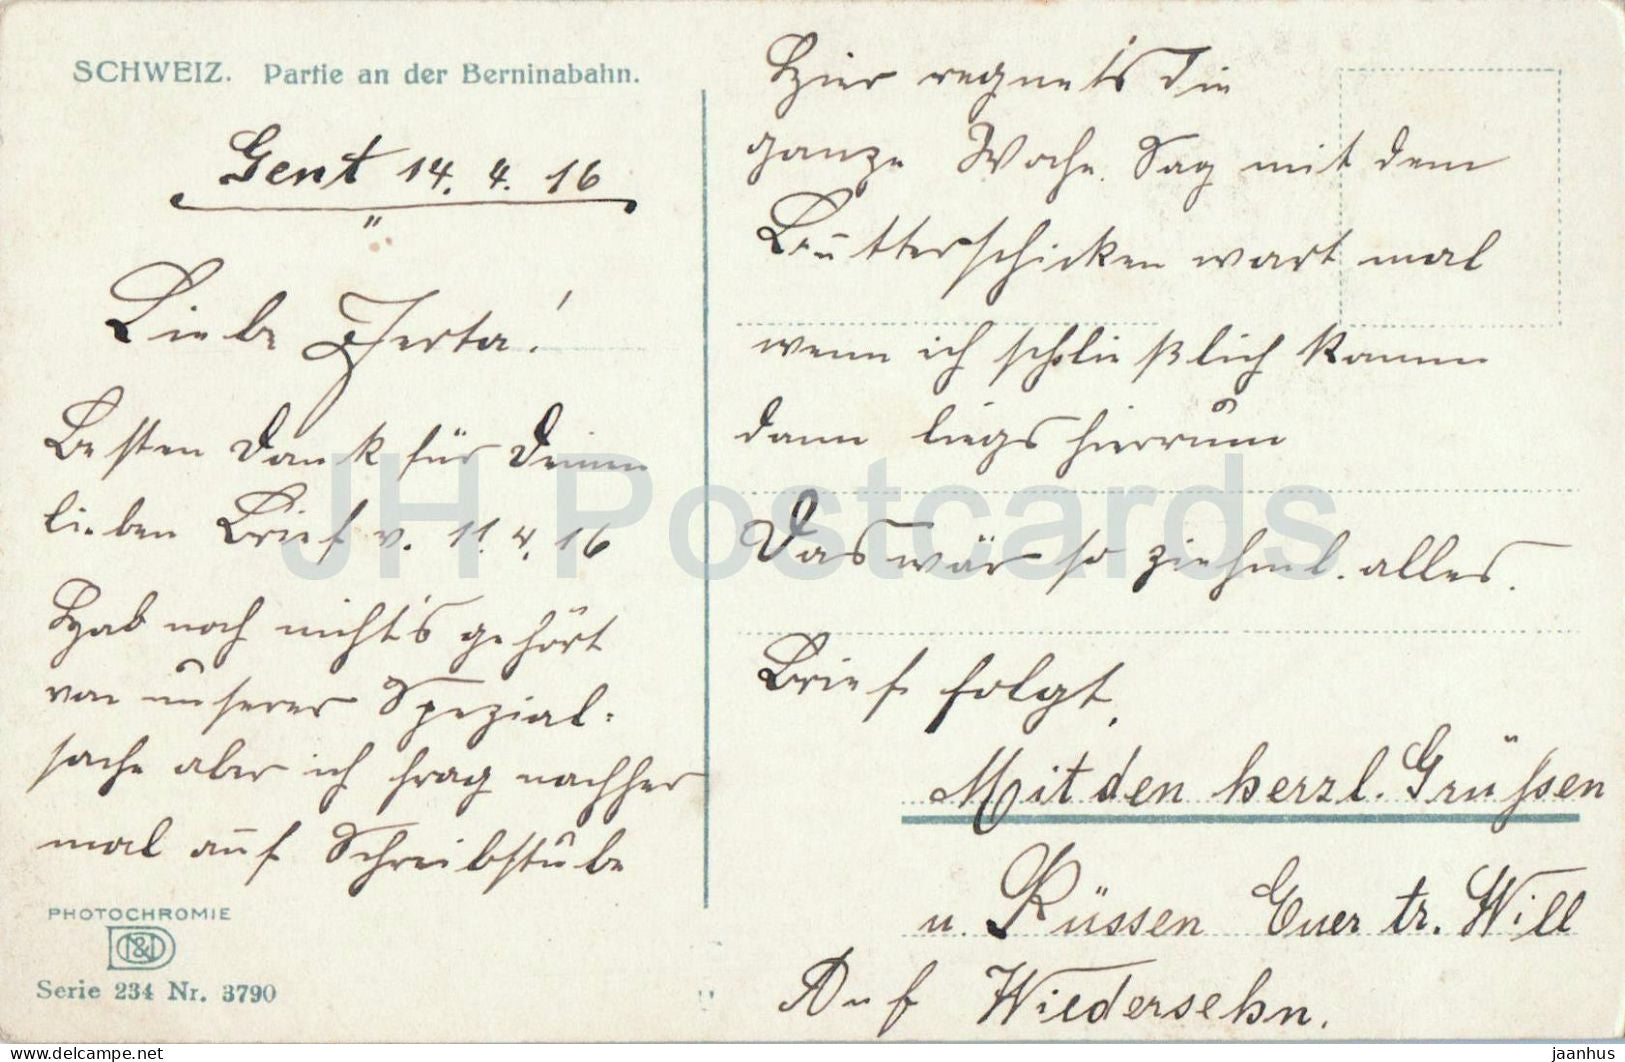 SCHWEIZ. Partie an der Berninabahn.
Gent 14. 4. 16
Liebe Herta!
Besten Dank für Deinen
lieben Brief v. 11. 4. 16
Hab noch nicht's gehört
von unserer Spezial-
sache aber ich frag nachher
mal auf Schreibstube
PHOTOCHROMIE
Serie 234 Nr. 3790
Hier regnet's die
ganze Woche. Sag mit dem
Butterschicken wart mal
wenn ich schließlich komm
dann liegs hierrum
Das wär so ziehml. alles.
Brief folgt,
Mit den herzl. Grüssen
u. Küssen Euer tr. Will
Auf Wiedersehn.
JH Postcards
www.delcampe.net
jaanhus